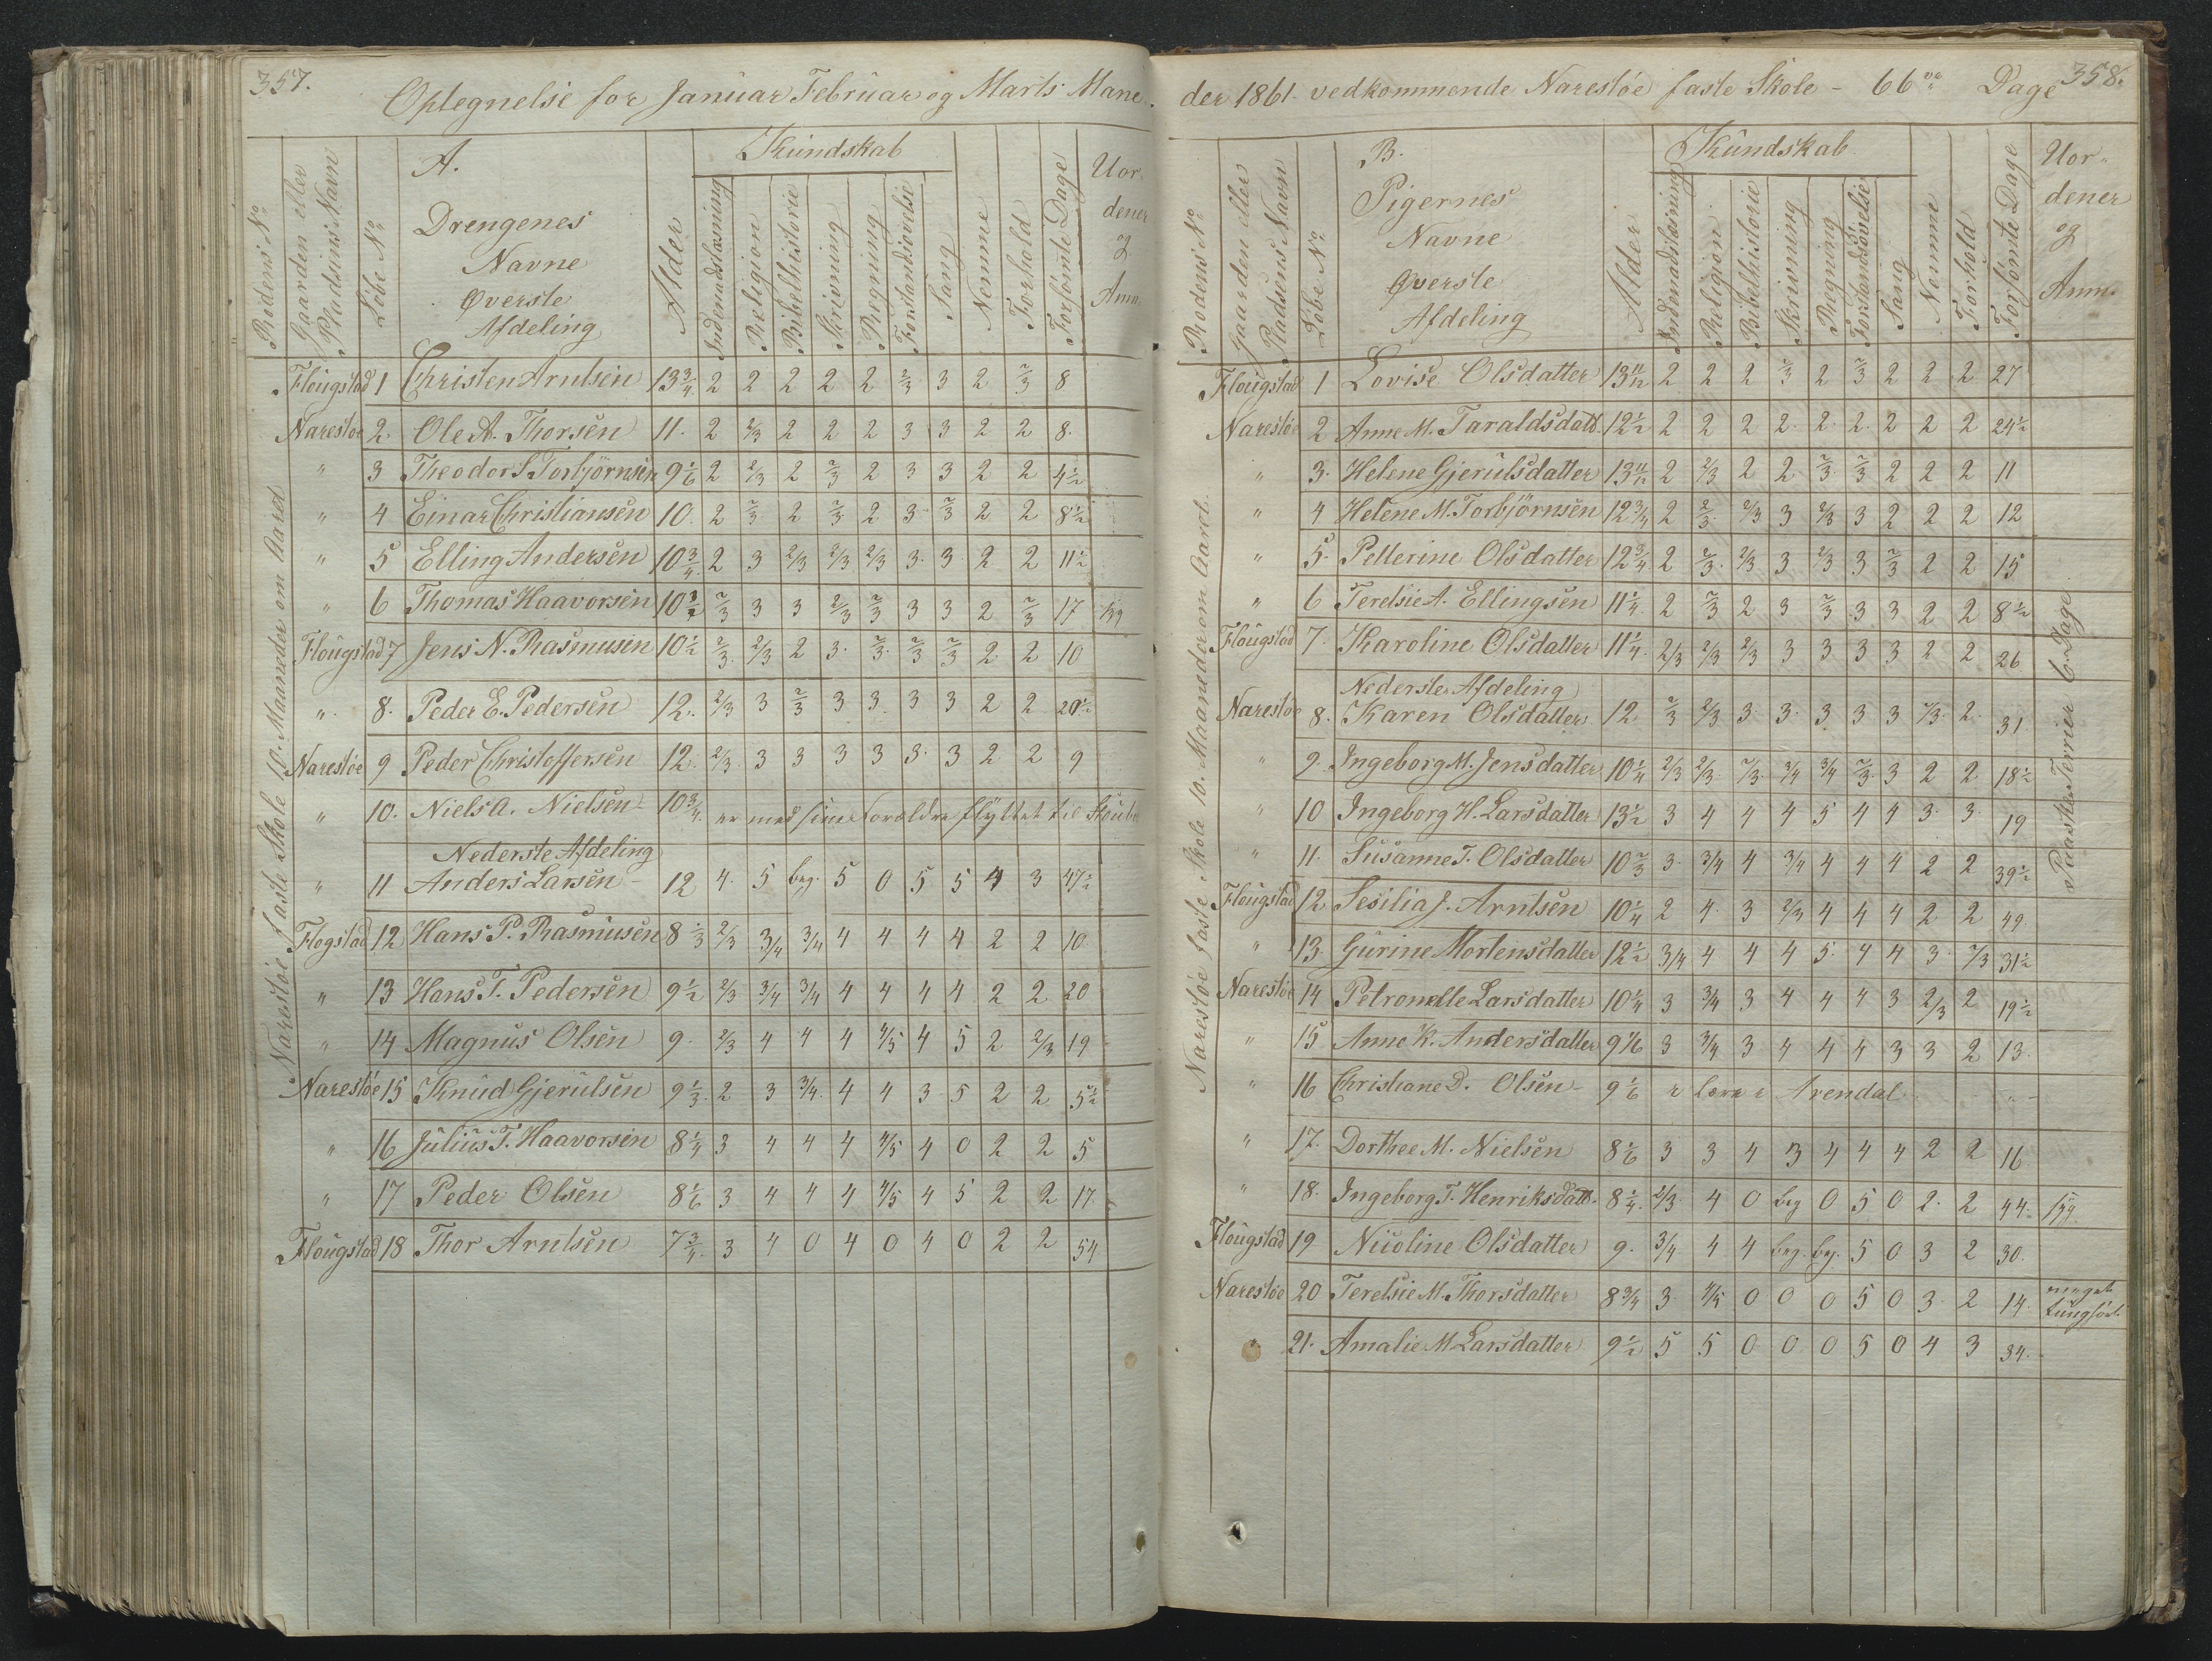 357.
Optegnelse for Januar Februar og Marts Mane-
Rodens No
Gaarden eller Pladsens Navn
Löbe No
A.
Drengenes
Navne
Øverste
Afdeling
Alder
Kundskab
Indenadslæsning
Religion
Bibelhistorie
Skrivning
Regning
Forstandsövelse
Sang
Nemme
Forhold
Forsömte Dage
Uor-
dener
og
Anm.
Narestöe faste Skole 10. Maaneder om Aaret
Flougstad 1 Christen Arntsen 13 3/4 2 2 2 2 2 2/3 3 2 2/3 8
Narestöe 2. Ole A. Thorsen 11. 2 2/3 2 2 2 3 3 2 2 8.
" 3 Theodor S Torbjörnsen 9 1/6 2 2/3 2 2/3 2 3 3 2 2 4 1/2
" 4 Einar Christiansen 10. 2 2/3 2 2/3 2 3 2/3 2 2 8 1/2
" 5 Elling Andersen 10 3/4 2 3 2/3 2/3 2/3 3. 3. 2 2 11 1/2
" 6 Thomas Haavorsen 10 1/2 2/3 3 3 2/3 2/3 3 3 2 2/3 17 syg
Flougstad 7 Jens N. Rasmusen 10 1/2 2/3 2/3 2 3. 2/3 2/3 2/3 2 2 10
" 8. Peder E. Pedersen 12. 2/3 3 2/3 3 3 3 3 2 2 20 1/2
Narestöe 9 Peder Christoffersen 12. 2/3 3 3 3 3 3. 3 2 2 9
" 10. Niels A. Nielsen 10 3/4 er med sine Forældre flyttet til
Nederste Afdeling
" 11 Anders Larsen 12 4. 5 beg. 5 0 5 5 4 3 47 1/2
Flogstad 12 Hans P. Rasmusen 8 1/3 2/3 3/4 3/4 4 4 4 4 2 2 10
" 13 Hans T. Pedersen 9 1/2 2/3 3/4 3/4 4 4 4 4 2 2 20
" 14 Magnus Olsen 9. 2/3 4 4 4 4/5 4 5 2 2/3 19
Narestöe 15 Knud Gjerulsen 9 1/3 2 3 3/4. 4 4 3 5 2 2 5 1/2
" 16 Julius T. Haavorsen 8 1/4 3 4 4 4 4/5 4 0 2 2 5
" 17 Peder Olsen 8 1/6 3 4 4 4 4/5 4 5 2 2 17
Flougstad 18 Thor Arntsen 7 3/4 3 4 0 4 0 4 0 2 2 54
358.
der 1861. vedkommende Narestöe faste Skole - 66 Dage
Rodens No
Gaarden eller Pladsens Navn
Löbe No
B.
Pigernes
Navne
Øverste
Afdeling
Alder
Kundskab
Indenadslæsning
Religion
Bibelhistorie
Skrivning
Regning
Forstandsövelse
Sang
Nemme
Forhold
Forsömte Dage
Uor-
dener
og
Anm.
Narestöe faste Skole 10. Maaneder om Aaret.
Flougstad 1 Lovise Olsdatter 13 11/12 2 2 2 2/3 2 2/3 2 2 2 27
Narestöe 2 Anne M. Taraldsdatt. 12 1/2 2 2 2 2. 2. 2. 2 2 2 24 1/2
" 3. Helene Gjerulsdatter 13 11/12 2 2/3 2 2 2/3 2/3 2 2 2 11
" 4 Helene M. Torbjörnsen 12 3/4 2 2/3 2/3 3 2/3 3 2 2 2 12
" 5. Pellerine Olsdatter 12 3/4 2 2/3 2/3 3 2/3 3 2/3 2 2 15
" 6 Terelsie A. Ellingsen 11 1/4 2 2/3 2 3 2/3 3 3 2 2 8 1/2
Flougstad 7. Karoline Olsdatter 11 1/4 2/3 2/3 2/3 3 3 3 3 2 2 26
Nederste Afdeling
Narestöe 8. Karen Olsdatter 12 2/3 2/3 3 3. 3 3 3 2/3 2 31
" 9. Ingeborg M. Jensdatter 10 1/4 2/3 2/3 2/3 3/4 3/4 2/3 3 2 2 18 1/2
" 10 Ingeborg H. Larsdatter 13 1/2 3 4 4 4 5 4 4 3 3 19
" 11. Susanne T. Olsdatter 10 2/3 3 3/4 4 3/4 4 4 4 2 2 39 1/2
Flougstad 12. Sesilia J. Arntsen 10 1/4 2 4 3 2/3 4 4 4 2 2 49
" 13. Gurine Mortensdatter 12 1/2 3/4 4 4 4 5. 4 4 3 2/3 31 1/2
Narestöe 14 Petronelle Larsdatter 10 1/4 3 3/4 3 4 4 4 3 2/3 2 19 1/2
" 15 Anne K. Andersdatter 9 1/6 3 3/4 3 4 4 4 3 3 2 13.
" 16 Christiane D. Olsen 9 1/6 Arendal
" 17. Dorthee M. Nielsen 8 1/6 3 3 4 3 4 4 4 2 2 16
" 18. Ingeborg T. Henriksdatt. 8 1/4 2/3 4 0 beg 0 5 0 2. 2 44. syg.
Flougstad 19 Nicoline Olsdatter 9. 3/4 4 4 beg. beg. 5 0 3 2 30.
Narestöe 20 Terelsie M. Thorsdatter 8 3/4 3 4/5 0 0 0 5 0 3 2 14. meget
tungför
" 21. Amalie M Larsdatter 9 1/2 5 5 0 0 0 5 0 4 3 34.
Paaske Ferier 6 Dage